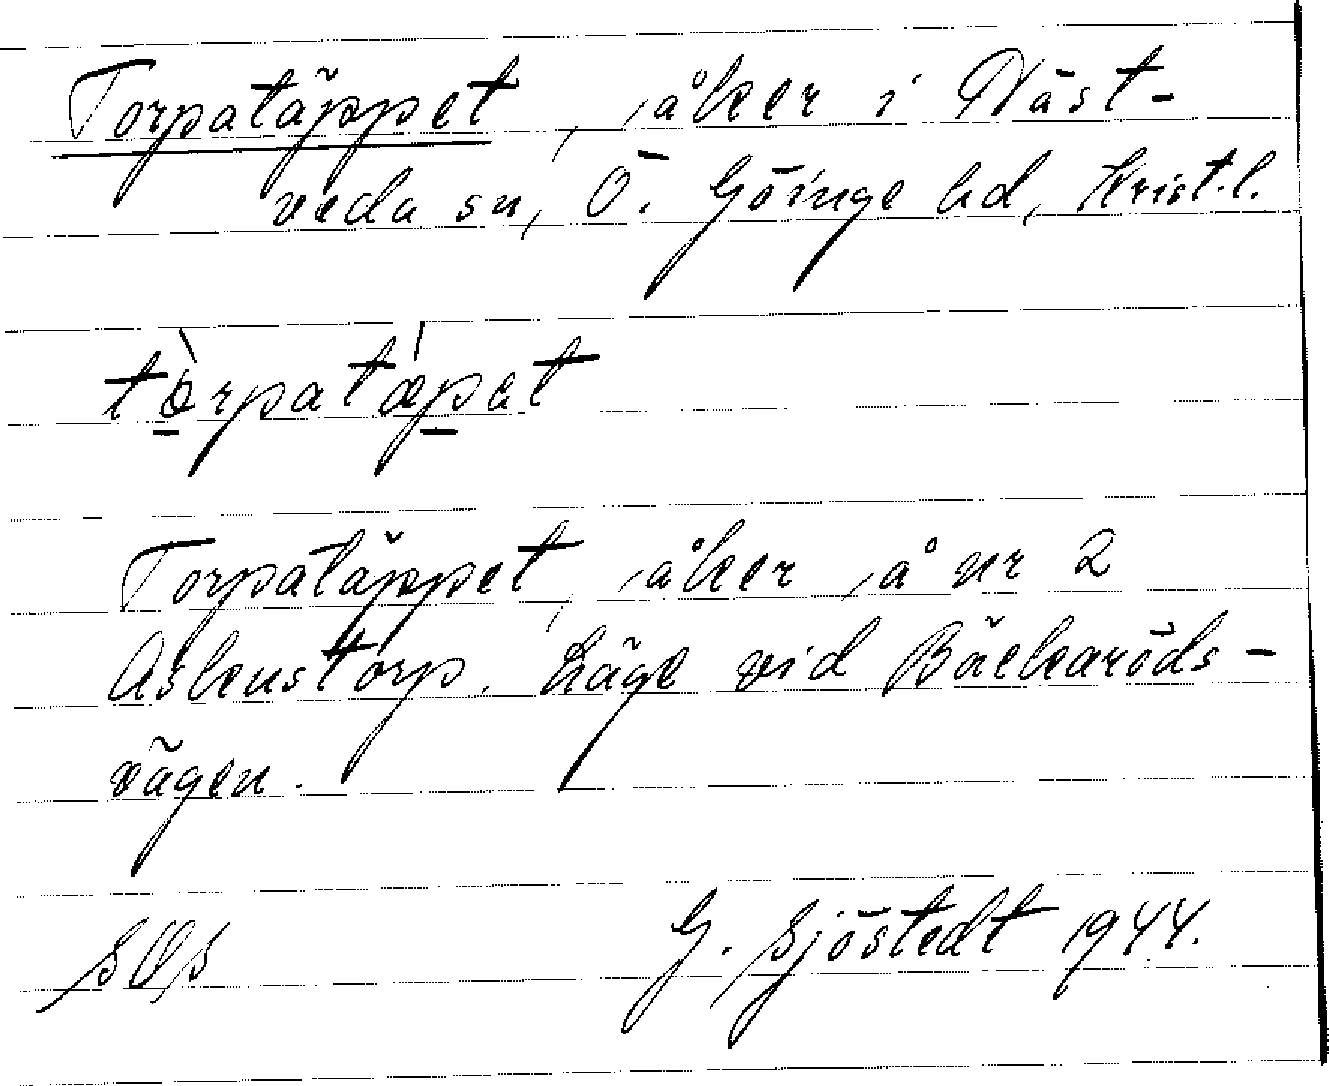 Torpatäppet, åker i Näst-
veda sn, Ö. Göinge hd, Krist.l.
tò̱rpatǽp̱at
Torpatäppet, åker å nr 2
Askenstorp. Läge vid Bäckaröds-
vägen.
G. Sjöstedt 1944.